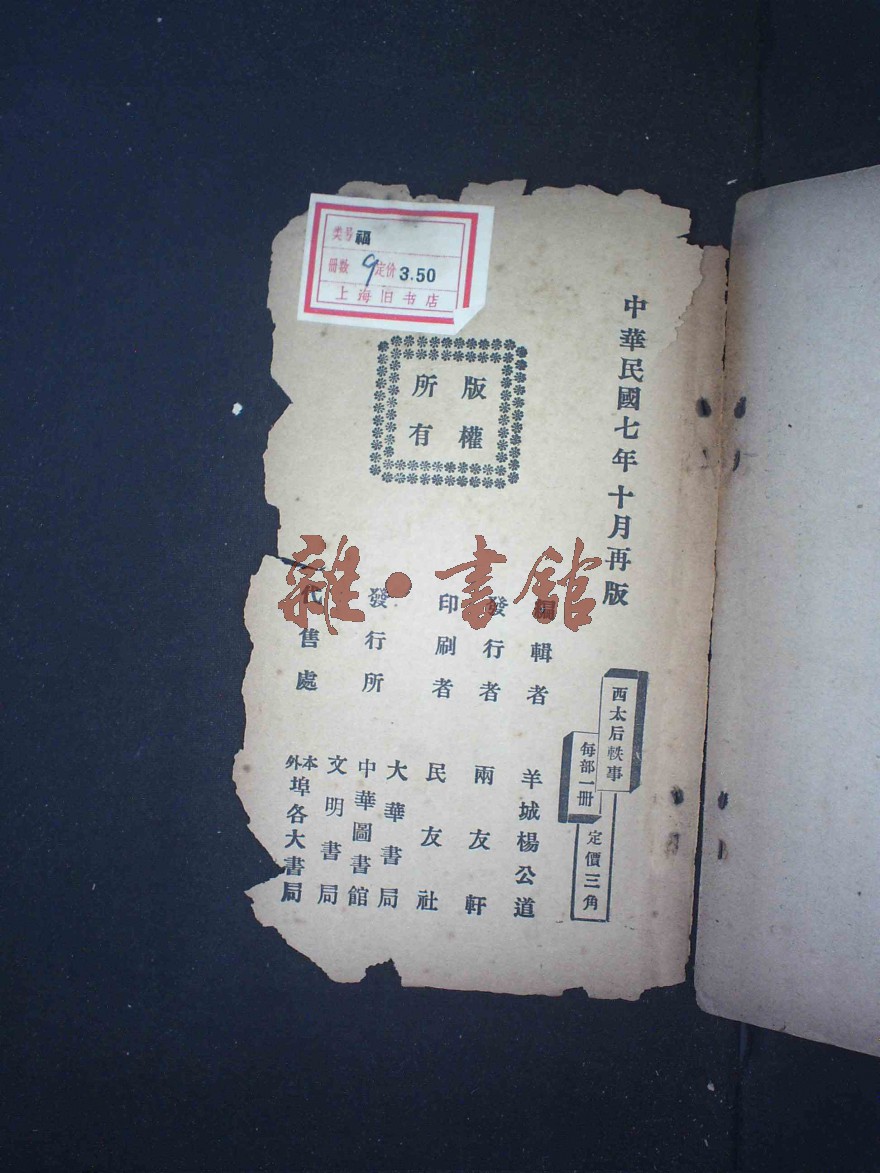 类号 福
册数 9 定价 3.50
上海旧书店
中華民國七年十月再版
西太后軼事
每部一冊
定價三角
版權
所有
編輯者 羊城楊公道
發行者 兩友軒
印刷者 民友社
發行所 大華書局
中華圖書館
文明書局
代售處 本外埠各大書局
雜·書館